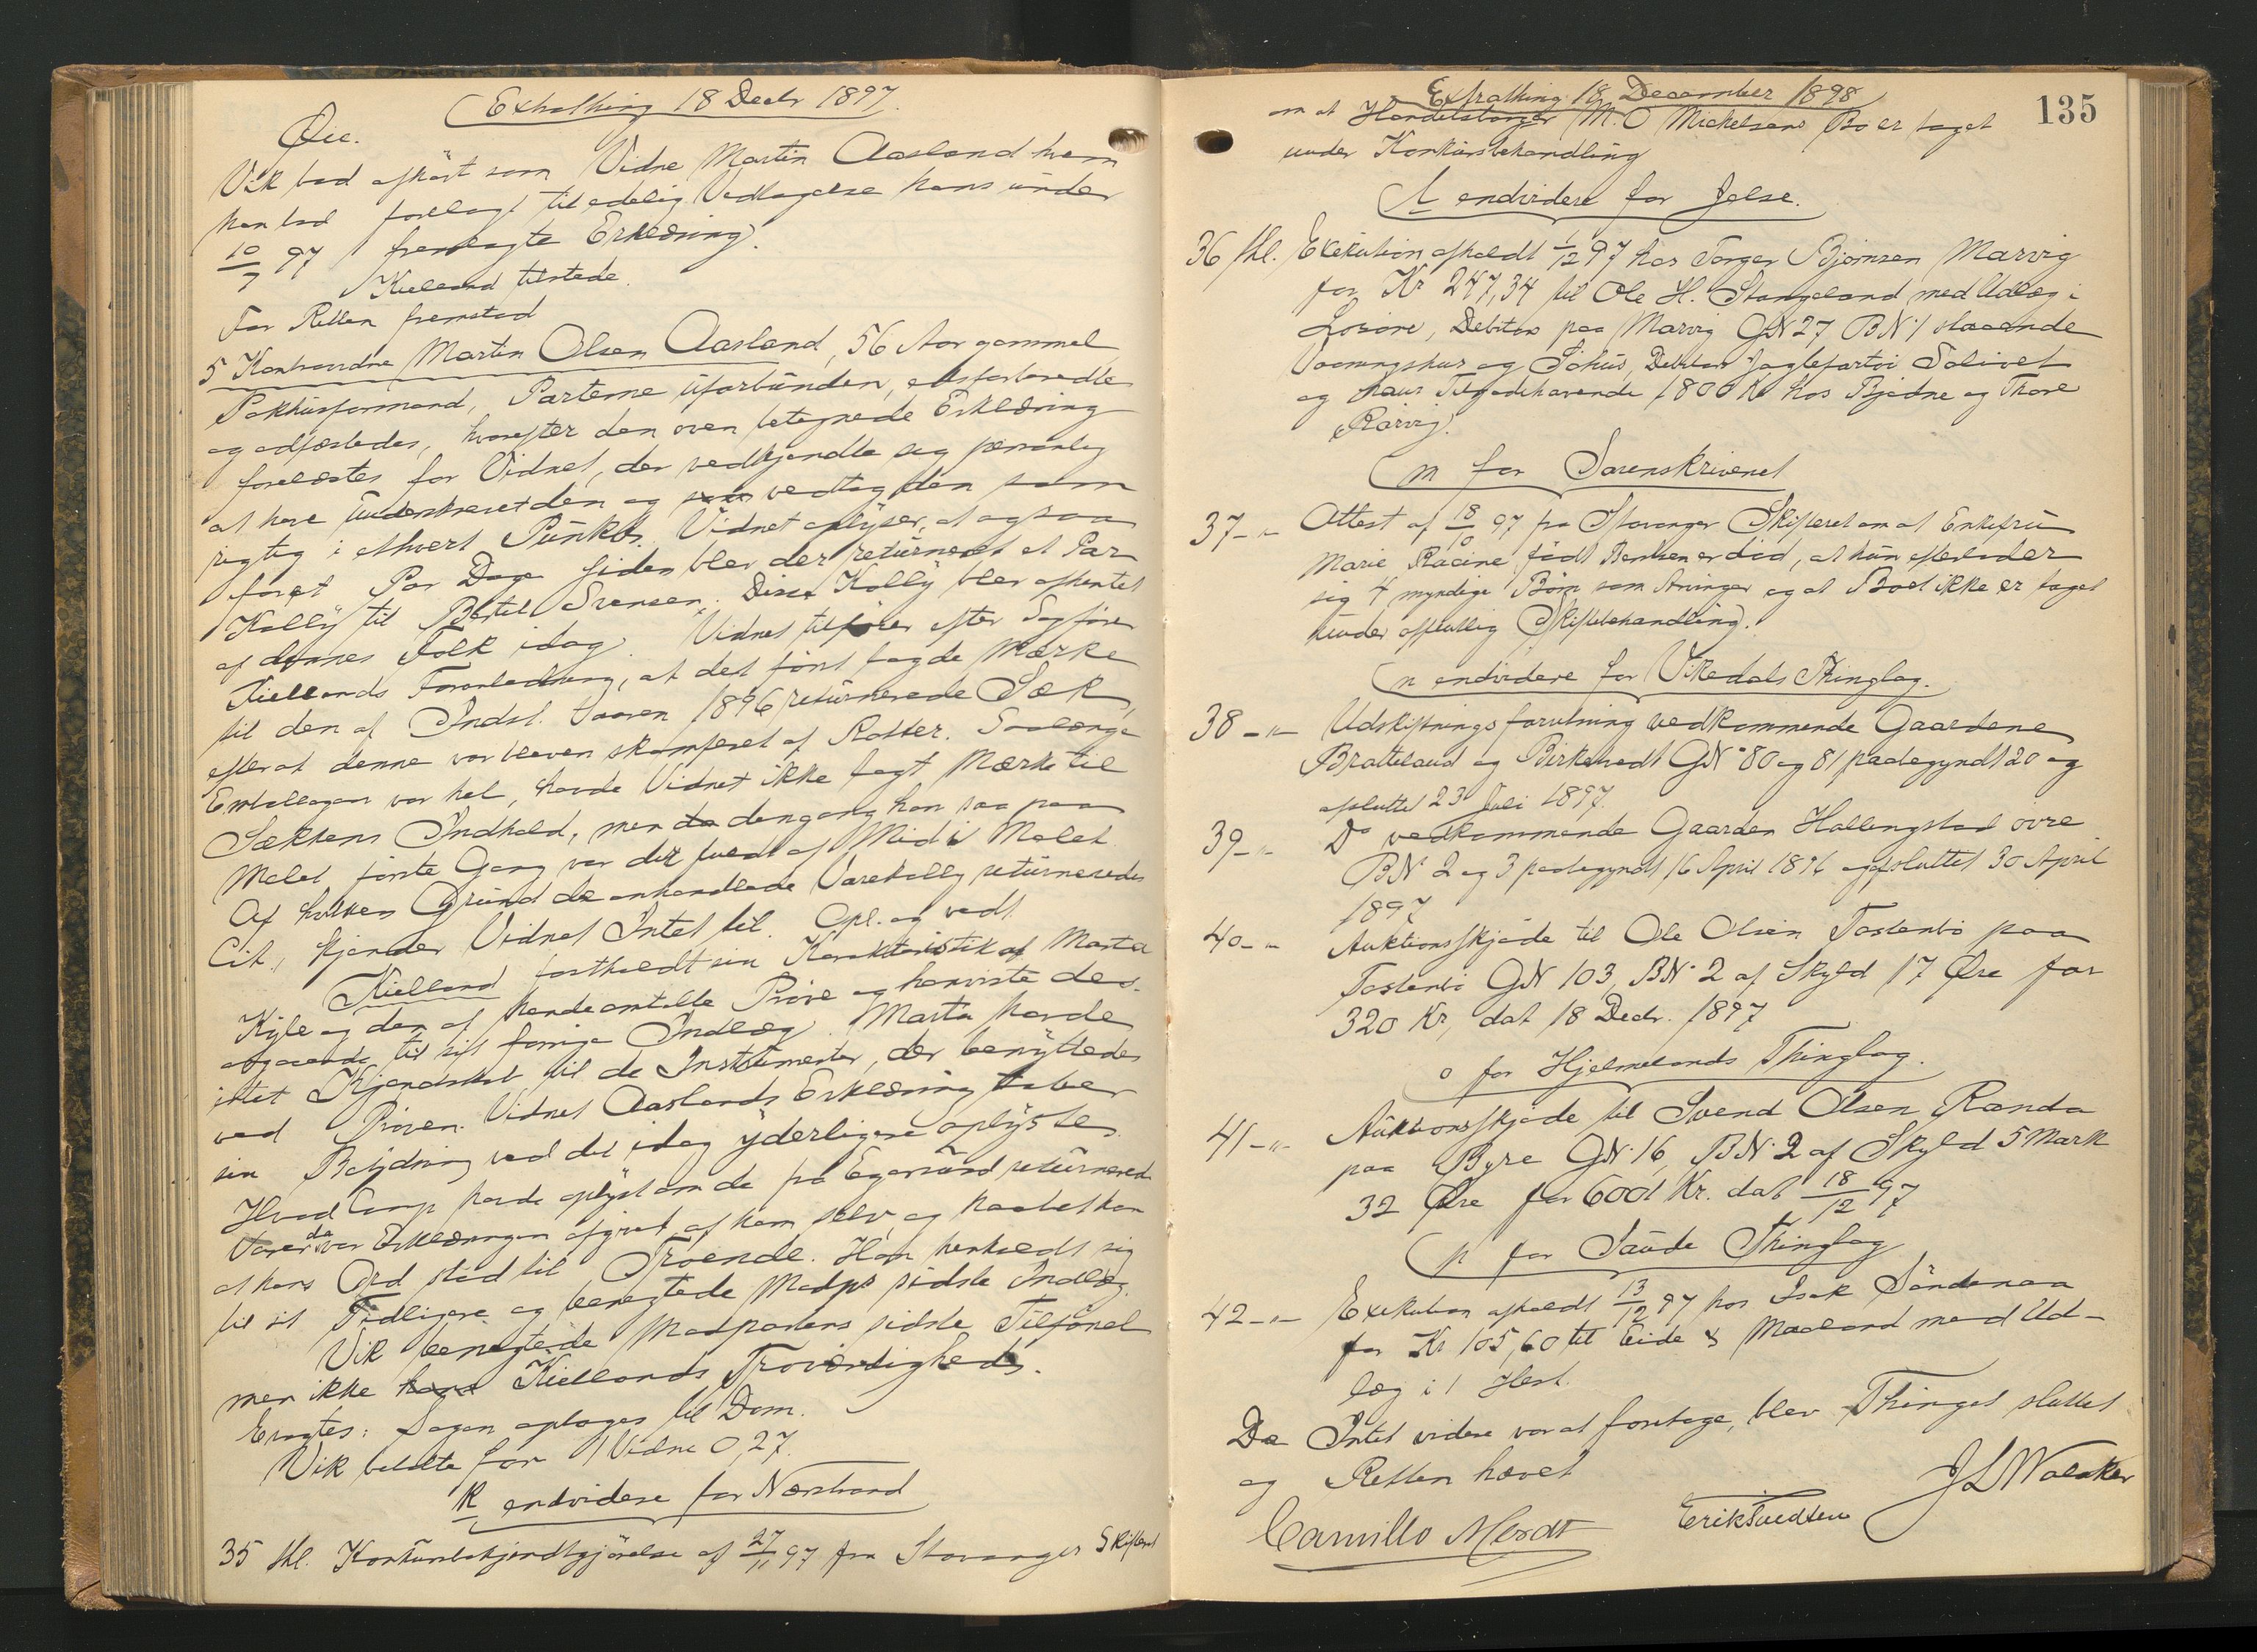 Extrathing 18 Decbr 1897.
Øre.
Vik bad afhørt som Vidne Martin Aasland hvem
han bad forelagt til edelig Vedtagelse hans under
10/9 97 fremlagte Erklæring.
Kielland tilstede.
For Retten fremstod
5 Kontravidne Martin Olsen Aasland, 56 Aar gammel
Pakhusformand, Parterne uforbunden, edsforberedtes
og edfæstedes, hvorefter den oven betegnede Erklæring
forelæstes for Vidnet, der vedkjendte sig personlig
at have underskrevet den og vedtog den som
rigtig i ethvert Punkt. Vidnet oplyser, at ogsaa
for et Par Dage siden blev der returneret et Par
Kolly til Bertel Svensen. Disse Kolly blev afhentet
af dennes Folk idag. Vidnet tilføier efter Sagfører
Kiellands Foranledning, at det først lagde Mærke
til den af Indst. Vaaren 1896 returnerede Sæk,
efterat denne var bleven skamferet af Rotter. Saalænge
Emballagen var hel, havde Vidnet ikke lagt Mærke til
Sækkens Indhold, men dengang han saa paa
Melet første Gang var der fuldt af Mid i Melet.
Af hvilken Grund de omhandlede Varekolly returneredes
Cit., kjender Vidnet Intet til. Opl. og vedt.
Kielland fastholdt sin Karakteristik af Marta
Kyle og den af hende omtalte Prøve og henviste des-
angaaende til sit forrige Indlæg. Marta havde
intet Kjendskab til de Instrumenter, der benyttedes
ved Prøven. Vidnet Aaslands Erklæring taber
sin Betydning ved det idag yderligere oplyste.
Hvad Comp havde oplyst om de fra Egersund returnerede
Varer da var Erklæringen afgivet af ham selv og haabet han
at hans Ord stod til Troende. Han henholdt sig
til sit Tidligere og benegtede Modps sidste Indlæg.
Vik benegtede Modpartens sidste Tilførsel
men ikke Kiellands Troværdighed.
Eragtes: Sagen optages til Dom.
Vik betalte for 1 Vidne 0,27.
k endvidere for Nærstrand
35 Hl. Konkursbekjendtgjørelse af 27/11 97 fra Stavanger Skifteret
Extrathing 18 December 1898
135
om at Handelsborger M. O Mickelsens Bo er taget
under Konkursbehandling
l endvidere for Jelse.
36 Hl. Exekution afholdt 1/12 97 hos Torger Bjørnsen Marvig
for Kr 247,34 til Ole H. Stangeland med Udlæg i
Losøre, Debitors paa Marvig GN 27 BN 1 staaende
Vaaningshus og Søhus, Debitors Jagtefartøi Solivet
og hans Tilgodehavende 1800 Kr hos Bjødne og Thore
Rørvig.
m for Sorenskriveriet
37 -"- Attest af 18/10 97 fra Stavanger Skifteret om at Enkefru
Marie Racine født Berntsen er død, at hun efterlader
sig 4 myndige Børn som Arvinger og at Boet ikke er taget
under offentlig Skiftebehandling.
n endvidere for Vikedals Thinglag.
38 -"- Udskiftningsforretning vedkommende Gaardene
Bratteland og Birkeland GN 80 og 81 paabegyndt 20 og
afsluttet 23 Juli 1897.
39 -"- Do vedkommende Gaarden Hallingstad øvre
BN 2 og 3 paabegyndt 16 April 1896 og afsluttet 30 April
1897
40 -"- Auktionsskjøde til Ole Olsen Tostenbø paa
Tostenbø GN 103, BN 2 af Skyld 17 Øre for
320 Kr, dat 18 Decbr. 1897
o for Hjelmelands Thinglag.
41 -"- Auktionsskjøde til Svend Olsen Randa
paa Byre GN 16, BN 2 af Skyld 5 Mark
32 Øre for 6001 Kr. dat 18/12 97
p for Saude Thinglag
42 -"- Exekution afholdt 13/12 97 hos Isak Søndenaa
for Kr 105,60 til Eide & Maaland med Ud-
læg i 1 Hest.
Da Intet videre var at foretage, blev Thinget sluttet
og Retten hævet
J L Walaker
Camillo Mordt Erik Tvedten